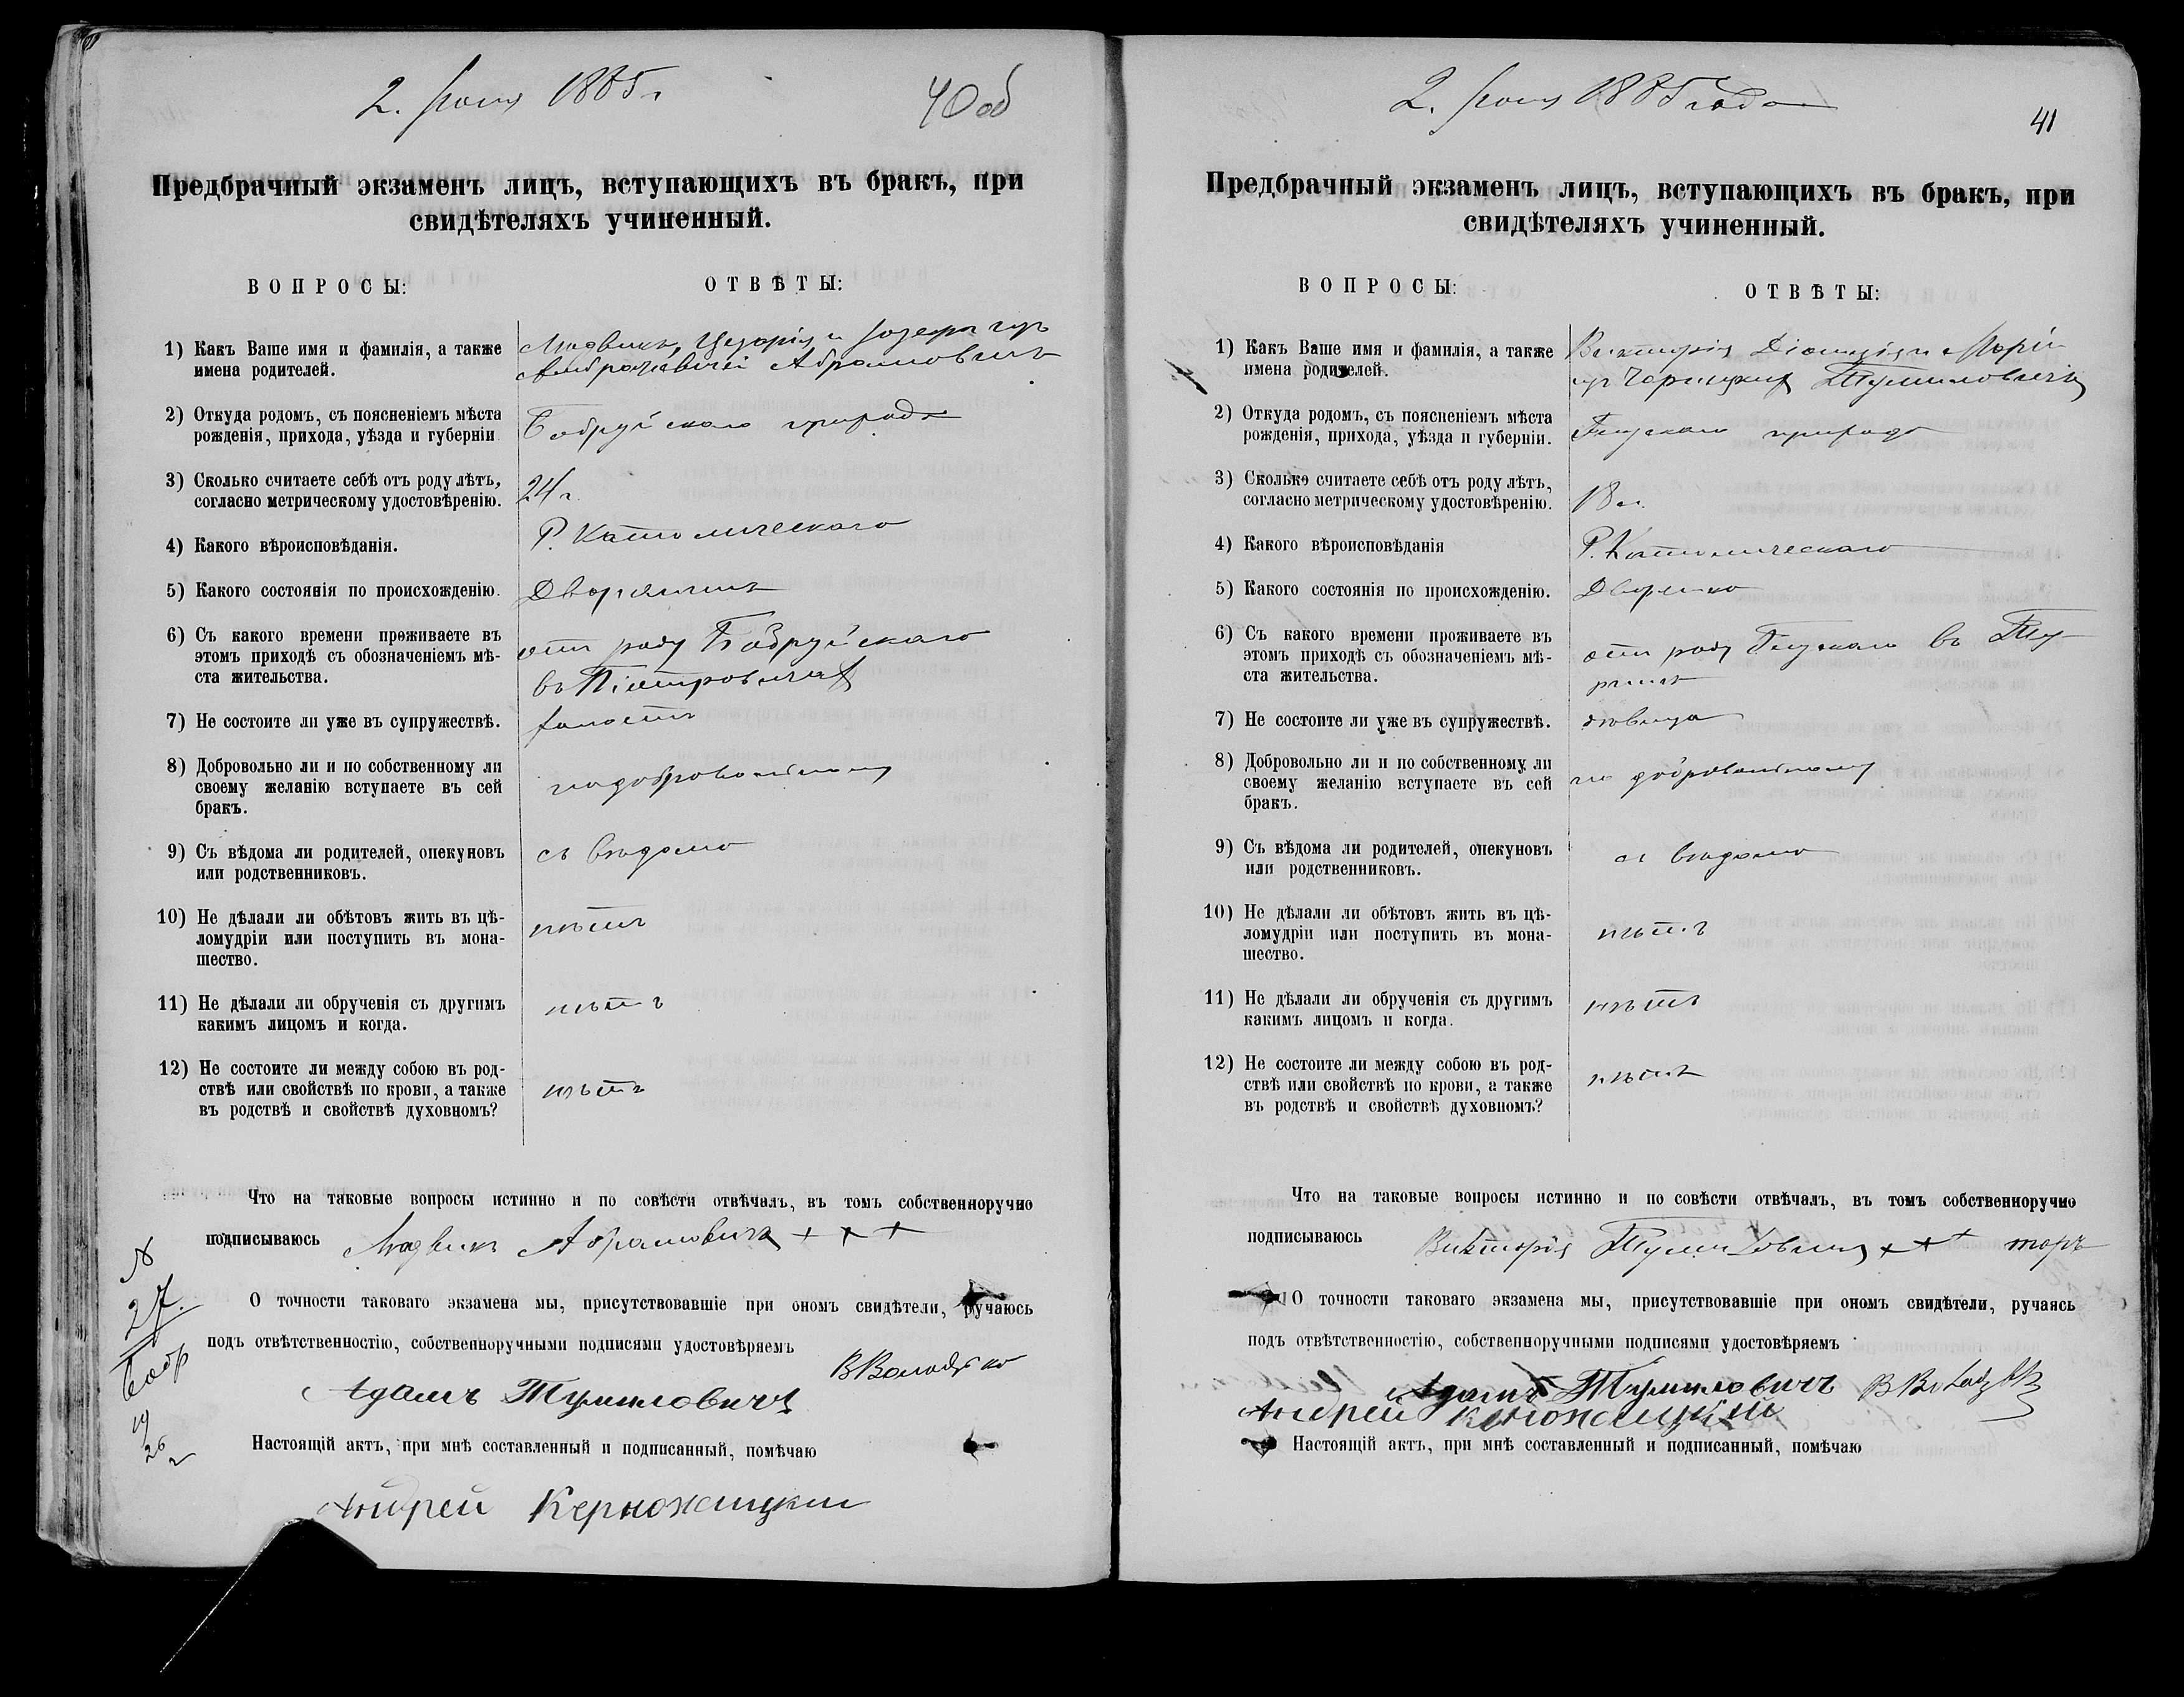 2. Іюня 1885 г.
40 об
Предбрачный экзаменъ лицъ, вступающихъ въ бракъ, при
свидѣтеляхъ учиненный.
ВОПРОСЫ:
ОТВѢТЫ:
1) Какъ Ваше имя и фамилія, а также
имена родителей.
Людвикъ, Цезарія и Іозефы изъ
Абрамовичъ
2) Откуда родомъ, съ поясненіемъ мѣста
рожденія, прихода, уѣзда и губерніи
Бобруйскаго прихода
3) Сколько считаете себѣ отъ роду лѣтъ,
согласно метрическому удостовѣренію.
24 г.
4) Какого вѣроисповѣданія.
Р. Католическаго
5) Какого состоянія по происхожденію.
Дворянинъ
6) Съ какого времени проживаете въ
этомъ приходѣ съ обозначеніемъ мѣ-
ста жительства.
отъ роду Бобруйскаго
въ
7) Не состоите ли уже въ супружествѣ.
холостъ
8) Добровольно ли и по собственному ли
своему желанію вступаете въ сей
бракъ.
по добровольному
9) Съ вѣдома ли родителей, опекуновъ
или родственниковъ.
съ вѣдома
10) Не дѣлали ли обѣтовъ жить въ цѣ-
ломудріи или поступить въ мона-
шество.
нѣтъ
11) Не дѣлали ли обрученія съ другимъ
какимъ лицомъ и когда.
нѣтъ
12) Не состоите ли между собою въ род-
ствѣ или свойствѣ по крови, а также
въ родствѣ и свойствѣ духовномъ?
нѣтъ
Что на таковые вопросы истинно и по совѣсти отвѣчалъ, въ томъ собственноручно
подписываюсь Людвикъ Абрамовичъ + + +
О точности таковаго экзамена мы, присутствовавшіе при ономъ свидѣтели, ручаюсь
подъ отвѣтственностію, собственноручными подписями удостовѣряемъ
Адамъ Тумиловичъ
Настоящій актъ, при мнѣ составленный и подписанный, помѣчаю
Андрей Керножицкий
№
27.
Бобр
2. Іюня 1885 года
41
Предбрачный экзаменъ лицъ, вступающихъ въ бракъ, при
свидѣтеляхъ учиненный.
ВОПРОСЫ:
ОТВѢТЫ:
1) Какъ Ваше имя и фамилія, а также
имена родителей.
Викторія Діонизія и Маріи
изъ Тумиловичъ
2) Откуда родомъ, съ поясненіемъ мѣста
рожденія, прихода, уѣзда и губерніи.
Глускаго прихода
3) Сколько считаете себѣ отъ роду лѣтъ,
согласно метрическому удостовѣренію.
18 л.
4) Какого вѣроисповѣданія
Р. Католическаго
5) Какого состоянія по происхожденію.
Дворянка
6) Съ какого времени проживаете въ
этомъ приходѣ съ обозначеніемъ мѣ-
ста жительства.
отъ роду Глускаго въ
7) Не состоите ли уже въ супружествѣ.
дѣвица
8) Добровольно ли и по собственному ли
своему желанію вступаете въ сей
бракъ.
по добровольному
9) Съ вѣдома ли родителей, опекуновъ
или родственниковъ.
съ вѣдома
10) Не дѣлали ли обѣтовъ жить въ цѣ-
ломудріи или поступить въ мона-
шество.
нѣтъ
11) Не дѣлали ли обрученія съ другимъ
какимъ лицомъ и когда.
нѣтъ
12) Не состоите ли между собою въ род-
ствѣ или свойствѣ по крови, а также
въ родствѣ и свойствѣ духовномъ?
нѣтъ
Что на таковые вопросы истинно и по совѣсти отвѣчалъ, въ томъ собственноручно
подписываюсь Викторія + + +
О точности таковаго экзамена мы, присутствовавшіе при ономъ свидѣтели, ручаясь
подъ отвѣтственностію, собственноручными подписями удостовѣряемъ
Адамъ Тумиловичъ
Андрей
Настоящій актъ, при мнѣ составленный и подписанный, помѣчаю